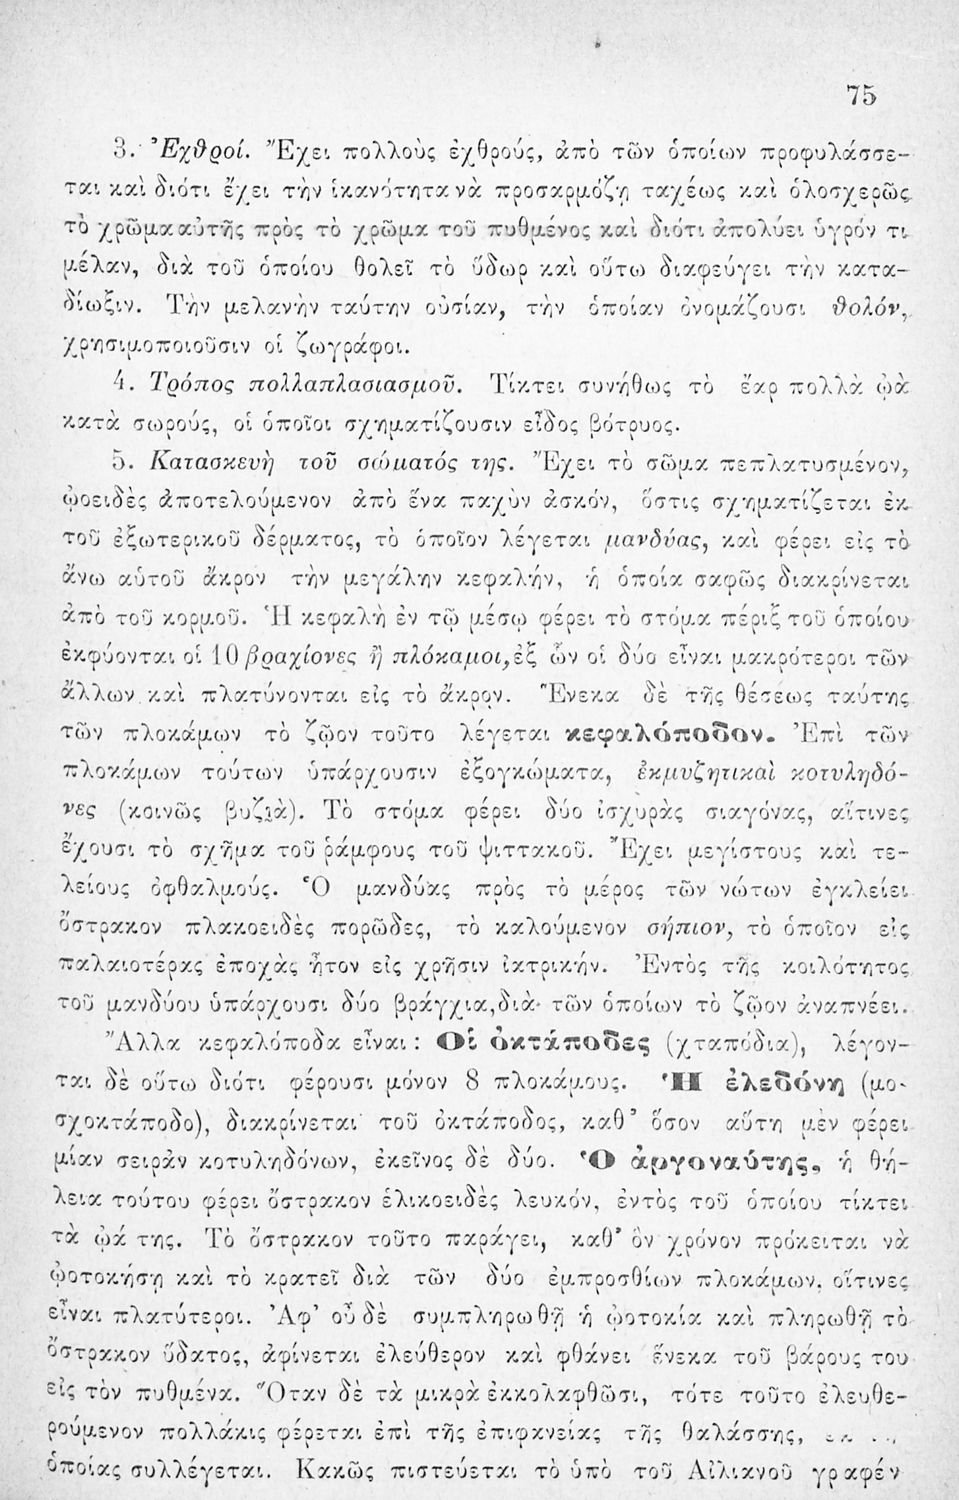 75
3. Ἐχθροί. Ἔχει πολλοὺς ἐχθρούς, ἀπὸ τῶν ὁποίων προφυλάσσε-
ται καὶ διότι ἔχει τὴν ἱκανότητα νὰ προσαρμόζῃ ταχέως καὶ ὁλοσχερῶς
τὸ χρῶμα αὐτῆς πρὸς τὸ χρῶμα τοῦ πυθμένος καὶ διότι ἀπολύει ὑγρόν τι
μέλαν, διὰ τοῦ ὁποίου θολεῖ τὸ ὕδωρ καὶ οὕτω διαφεύγει τὴν κατα-
δίωξιν. Τὴν μελανὴν ταύτην οὐσίαν, τὴν ὁποίαν ὀνομάζουσι θολόν,
χρησιμοποιοῦσιν οἱ ζωγράφοι.
4. Τρόπος πολλαπλασιασμοῦ. Τίκτει συνήθως τὸ ἔαρ πολλὰ ᾠὰ
κατὰ σωρούς, οἱ ὁποῖοι σχηματίζουσιν εἶδος βότρυος.
5. Κατασκευὴ τοῦ σώματός της. Ἔχει τὸ σῶμα πεπλατυσμένον,
ᾠοειδὲς ἀποτελούμενον ἀπὸ ἕνα παχὺν ἀσκόν, ὅστις σχηματίζεται ἐκ
τοῦ ἐξωτερικοῦ δέρματος, τὸ ὁποῖον λέγεται μανδύας, καὶ φέρει εἰς τὸ
ἄνω αὑτοῦ ἄκρον τὴν μεγάλην κεφαλήν, ἡ ὁποία σαφῶς διακρίνεται
ἀπὸ τοῦ κορμοῦ. Ἡ κεφαλὴ ἐν τῷ μέσῳ φέρει τὸ στόμα πέριξ τοῦ ὁποίου
ἐκφύονται οἱ 10 βραχίονες ἢ πλόκαμοι, ἐξ ὧν οἱ δύο εἶναι μακρότεροι τῶν
ἄλλων καὶ πλατύνονται εἰς τὸ ἄκρον. Ἕνεκα δὲ τῆς θέσεως ταύτης
τῶν πλοκάμων τὸ ζῷον τοῦτο λέγεται κεφαλόποδον. Ἐπὶ τῶν
πλοκάμων τούτων ὑπάρχουσιν ἐξογκώματα, ἐκμυζητικαὶ κοτυληδό-
νες (κοινῶς βυζιὰ). Τὸ στόμα φέρει δύο ἰσχυρὰς σιαγόνας, αἵτινες
ἔχουσι τὸ σχῆμα τοῦ ῥάμφους τοῦ ψιττακοῦ. Ἔχει μεγίστους καὶ τε-
λείους ὀφθαλμούς. Ὁ μανδύας πρὸς τὸ μέρος τῶν νώτων ἐγκλείει
ὄστρακον πλακοειδὲς πορῶδες, τὸ καλούμενον σήπιον, τὸ ὁποῖον εἰς
παλαιοτέρας ἐποχὰς ἦτον εἰς χρῆσιν ἰατρικήν. Ἐντὸς τῆς κοιλότητος
τοῦ μανδύου ὑπάρχουσι δύο βράγχια, διὰ τῶν ὁποίων τὸ ζῷον ἀναπνέει.
Ἄλλα κεφαλόποδα εἶναι : Οἱ ὀκτάποδες (χταπόδια), λέγον-
ται δὲ οὕτω διότι φέρουσι μόνον 8 πλοκάμους. Ἡ ἐλεδόνη (μο-
σχοκτάποδο), διακρίνεται τοῦ ὀκτάποδος, καθ' ὅσον αὕτη μὲν φέρει
μίαν σειρὰν κοτυληδόνων, ἐκεῖνος δὲ δύο. Ὁ ἀργοναύτης, ἡ θή-
λεια τούτου φέρει ὄστρακον ἑλικοειδὲς λευκόν, ἐντὸς τοῦ ὁποίου τίκτει
τὰ ᾠά της. Τὸ ὄστρακον τοῦτο παράγει, καθ' ὃν χρόνον πρόκειται νὰ
ᾠοτοκήσῃ καὶ τὸ κρατεῖ διὰ τῶν δύο ἐμπροσθίων πλοκάμων, οἵτινες
εἶναι πλατύτεροι. Ἀφ' οὗ δὲ συμπληρωθῇ ἡ ᾠοτοκία καὶ πληρωθῇ τὸ
ὄστρακον ὕδατος, ἀφίνεται ἐλεύθερον καὶ φθάνει ἕνεκα τοῦ βάρους του
εἰς τὸν πυθμένα. Ὅταν δὲ τὰ μικρὰ ἐκκολαφθῶσι, τότε τοῦτο ἐλευθε-
ρούμενον πολλάκις φέρεται ἐπὶ τῆς ἐπιφανείας τῆς θαλάσσης,
ὁποίας συλλέγεται. Κακῶς πιστεύεται τὸ ὑπὸ τοῦ Αἰλιανοῦ γραφέν